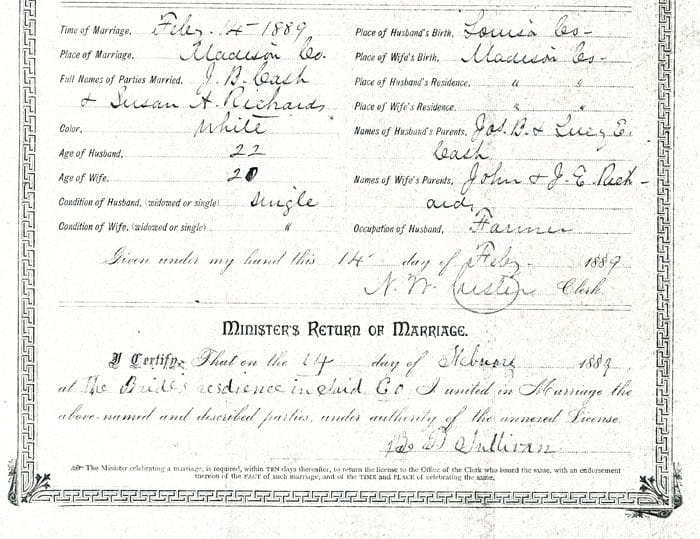 Time of Marriage, Feby. 14- 1889
Place of Marriage, Madison Co.
Full Names of Parties Married, J. B. Cash
& Susan A. Richards
Color, White
Age of Husband, 22
Age of Wife, 20
Condition of Husband, (widowed or single) Single
Condition of Wife, (widowed or single) "
Place of Husband's Birth, Louisa Co-
Place of Wife's Birth, Madison Co-
Place of Husband's Residence, " "
Place of Wife's Residence, " "
Names of Husband's Parents, Jos. B. & Lucy E.
Cash
Names of Wife's Parents, John & J. E. Rich-
ards
Occupation of Husband, Farmer
Given under my hand this 14 day of Feby. 1889
N. W. Clerk
MINISTER'S RETURN OF MARRIAGE.
I Certify, That on the 14 day of Febuary 1889,
at The Brides resdience in said Co I united in Marriage the
above-named and described parties, under authority of the annexed License.
Sullivan
The Minister celebrating a marriage, is required, within TEN days thereafter, to return the license to the Office of the Clerk who issued the same, with an endorsement
thereon of the FACT of such marriage, and of the TIME and PLACE of celebrating the same.